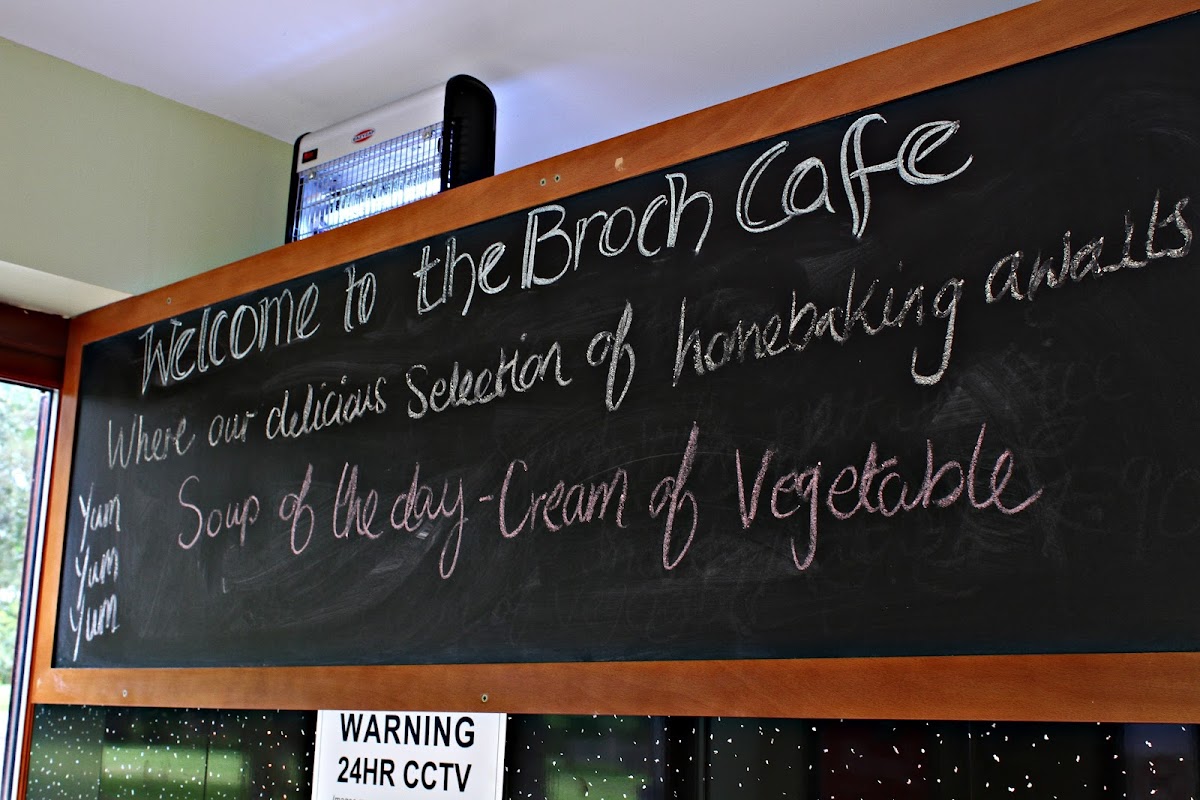 Welcome to the Broch Cafe
Where our delicious Selection of homebaking awaits
Soup of the day - Cream of Vegetable
Yum
Yum
Yum
WARNING
24HR CCTV